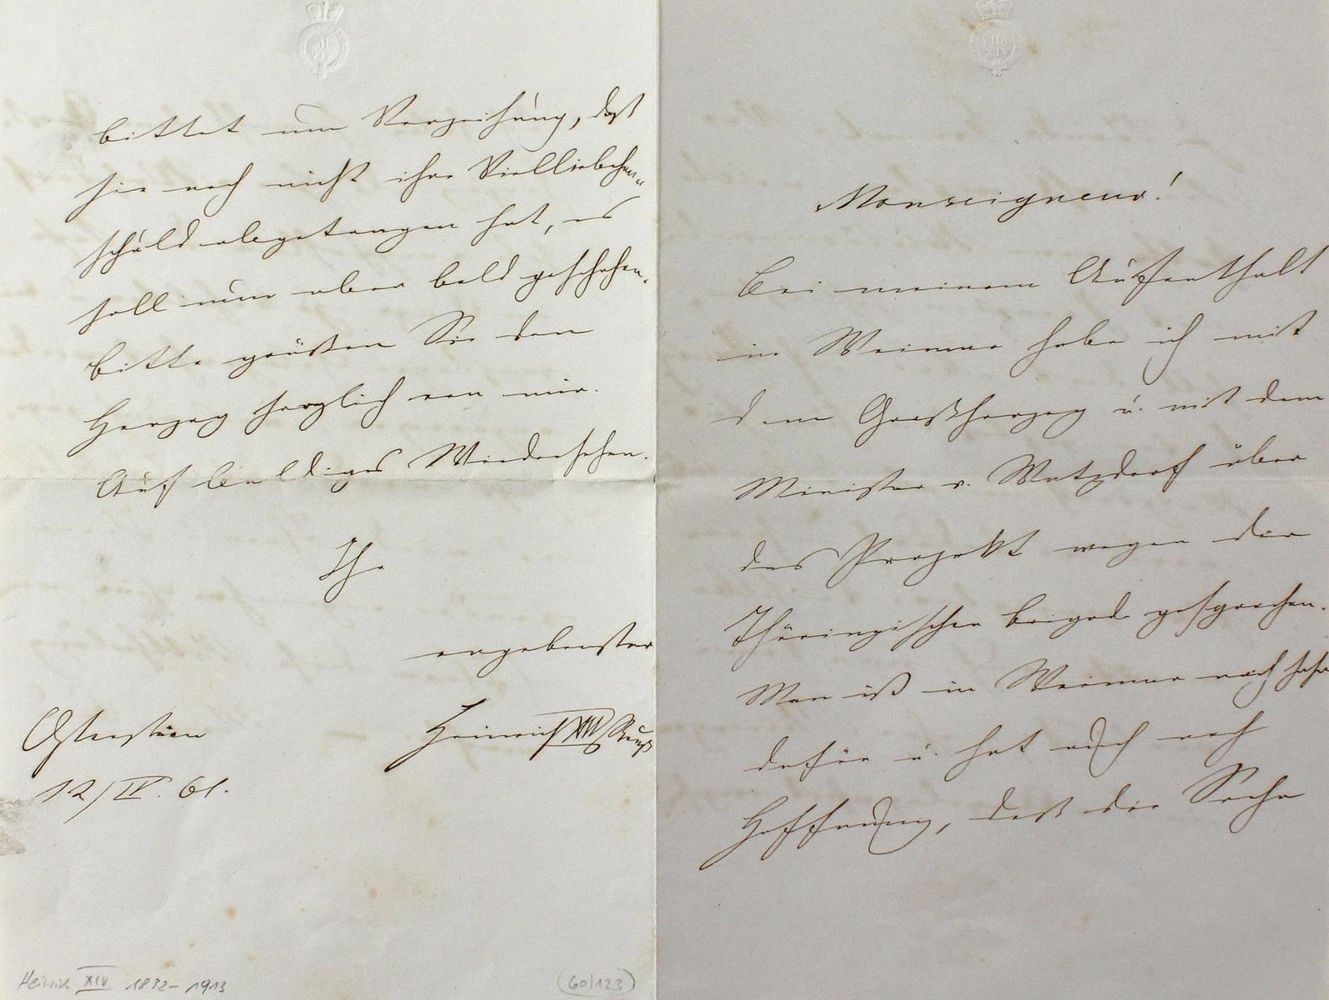 Monseigneur!
Bei meinem Aufenthalt
in Weimar habe ich mit
dem Großherzog u. mit dem
Minister v. Watzdorf über
das Projekt wegen der
Thüringischen Brigade gesprochen.
Man ist in Weimar noch sehr
dafür u. hat auch noch
Hoffnung, daß die Sache
bittet um Verzeihung, daß
sie noch nicht ihre Vielliebchen„
schuld abgetragen hat, es
soll nun aber bald geschehen.
Bitte grüßen Sie den
Herzog herzlich von mir.
Auf baldiges Wiedersehen.
Ihr
ergebenster
Heinrich XIV Reuß
Osterstein
12/IV. 61.
Heinrich XIV 1832-1913
60/123